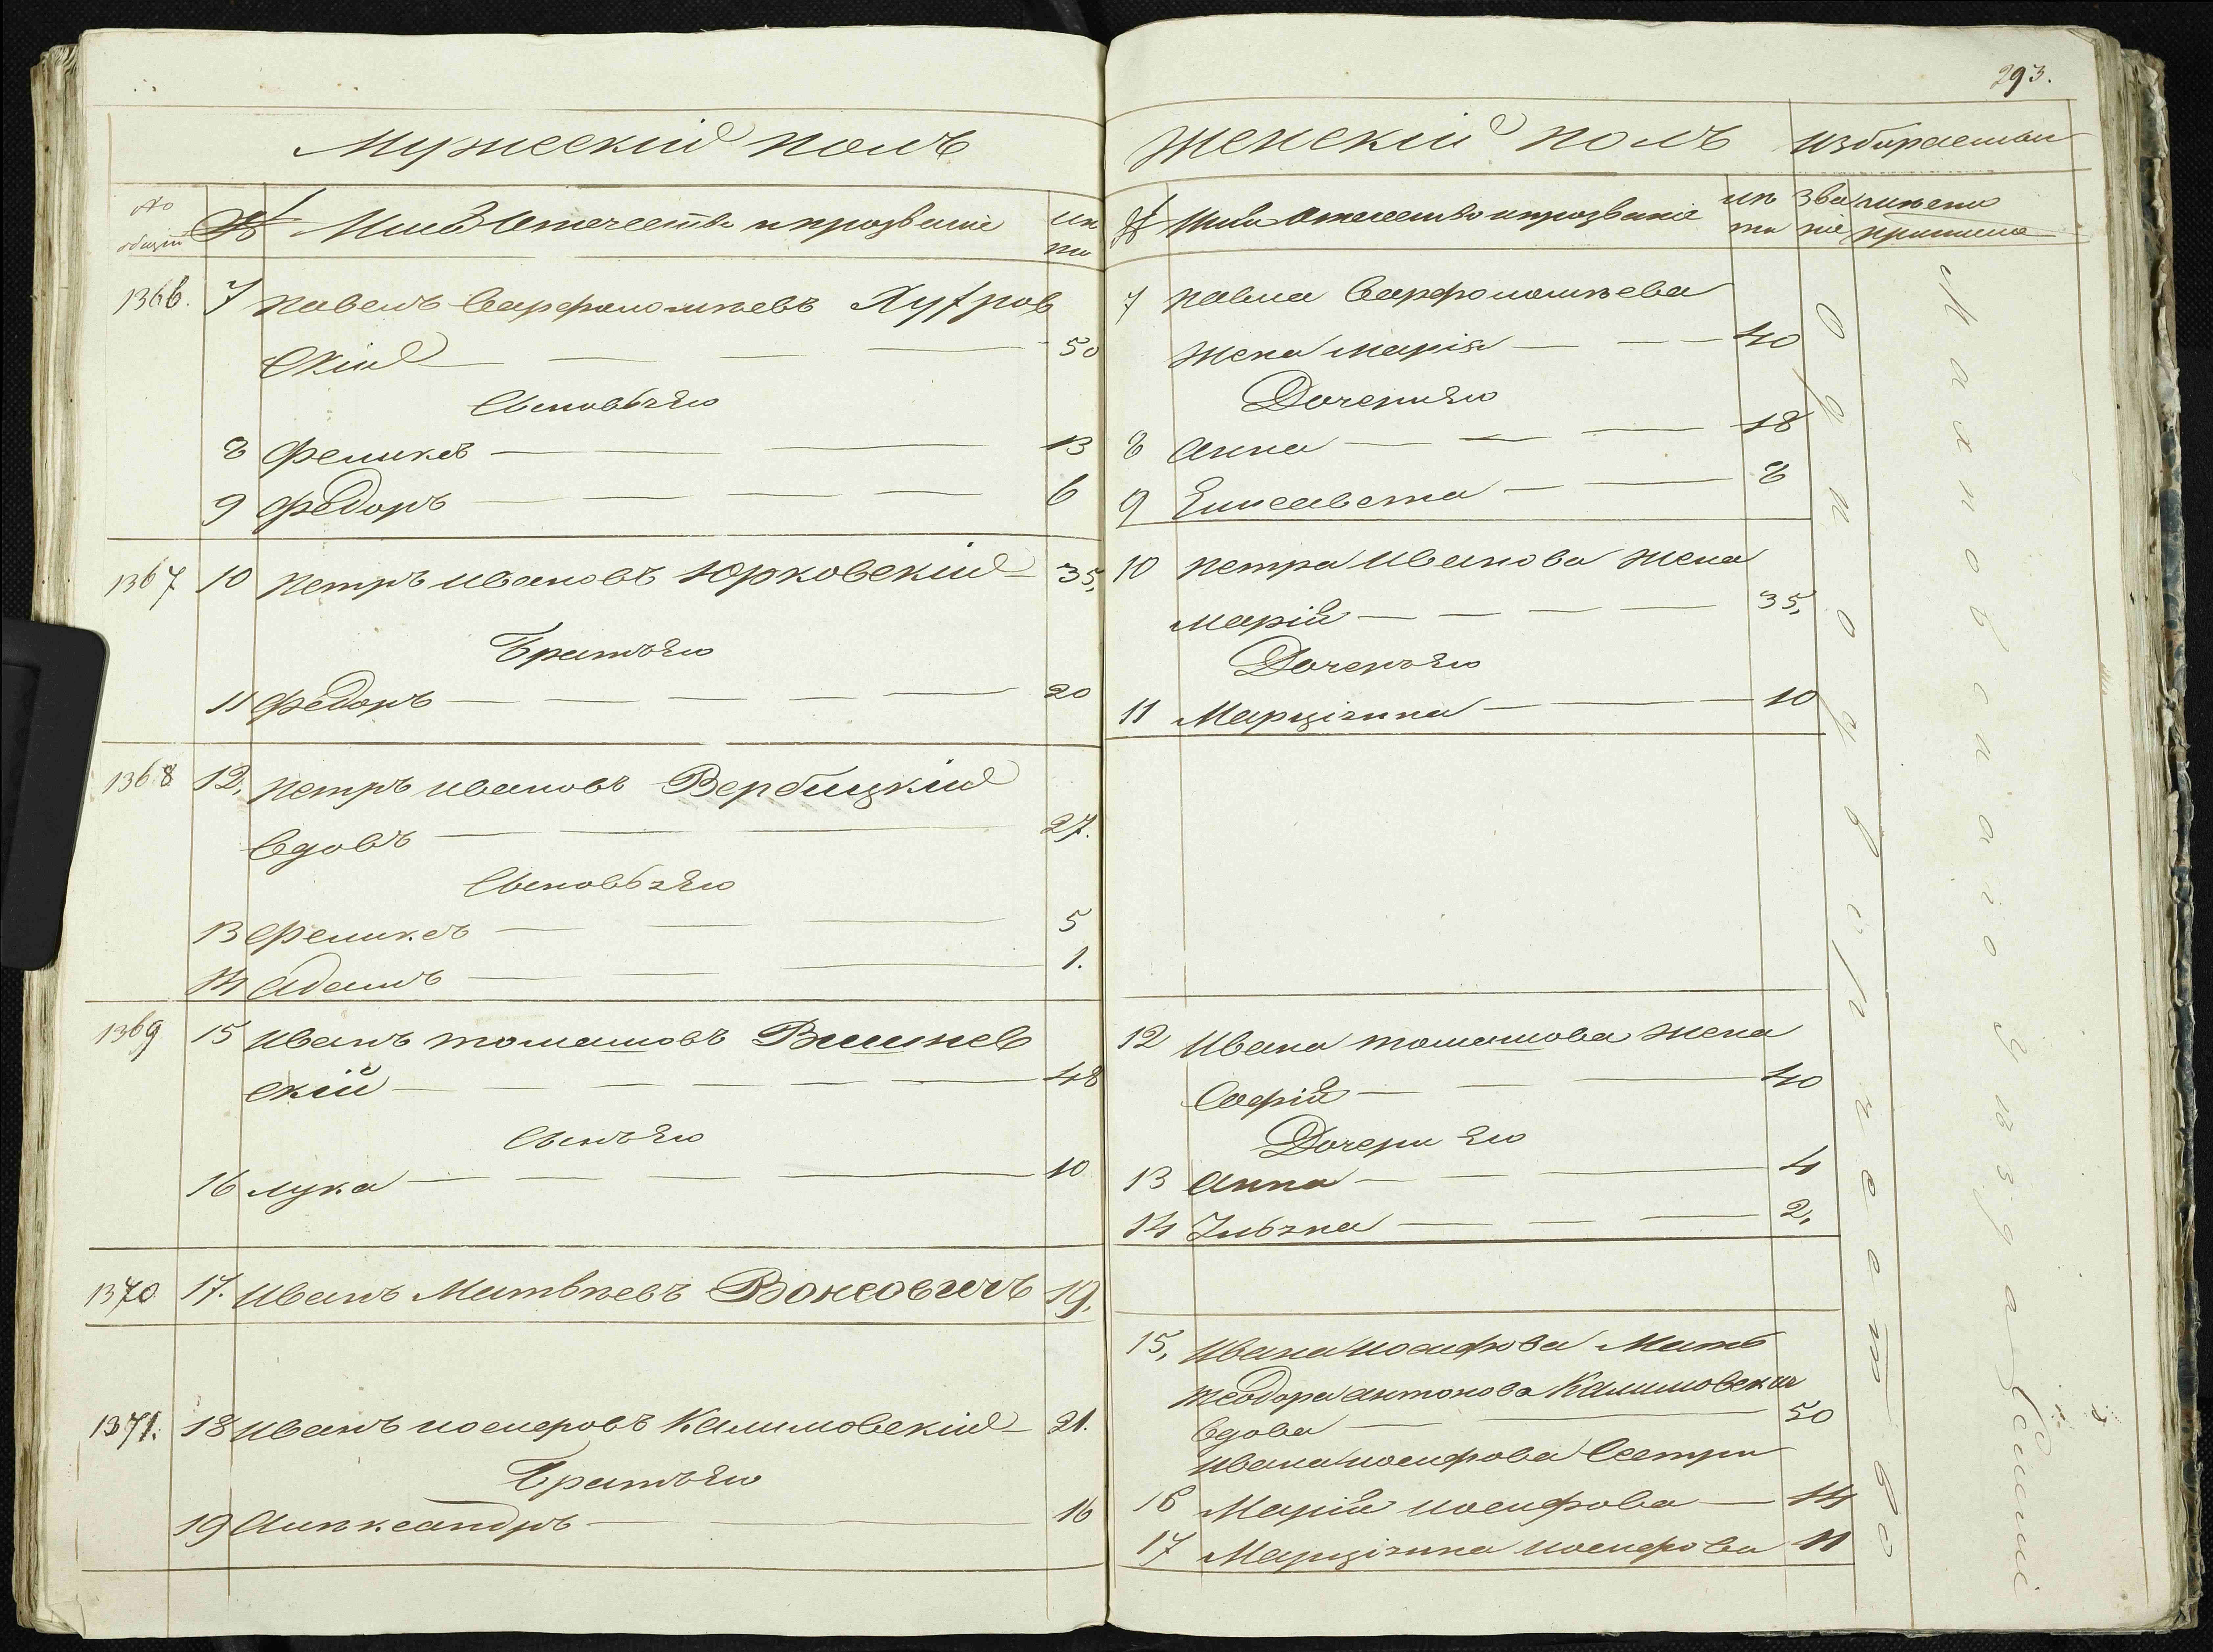 293.
Мужескiй полъ
По общiй
№ Имя Отечество и прозванiе
лѣта
1366. 7 Павелъ Варфоломѣевъ
скiй 50
Сыновья Его
8 Феликсъ 13
9 Федоръ 6
1367 10 Петръ Ивановъ Юрковскiй 35,
Братъ Его
11 Федоръ 20
1368 12, Петръ Ивановъ Вербицкiй
вдовъ 27.
Сыновья Его
13 Феликсъ 5
14 Адамъ 1.
1369 15 Иванъ Томашовъ Вишнев
скiй 48
Сынъ Его
16 Лука 10
1370 17. Иванъ Матвѣевъ Вонсовичъ 19.
1371. 18 Иванъ Иосифовъ Калиновскiй 21.
Братъ Его
19 Алпксандръ 16
Женскiй полъ
Избираемыи
№ Имя Отчество и прозванiе
лѣта
Званiе
7 Павла Варфоломѣева
жена Марiя 40
Дочери Его
8 Анна 18
9 Елисавета 8
10 Петра Иванова жена
Марiя 35,
Дочь Его
11 Марцiянна 10
12 Ивана Томашова жена
Софiя 40
Дочери Его
13 Анна 4
14 2,
15, Ивана Иосифова Мать
Теодора Антонова Калиновская
вдова 50
Ивана Иосифова Сестры
16 Марiя Иосифова 14
17 Марцiянна Иосифова 11
Однодворческое
Махновскаго уизда